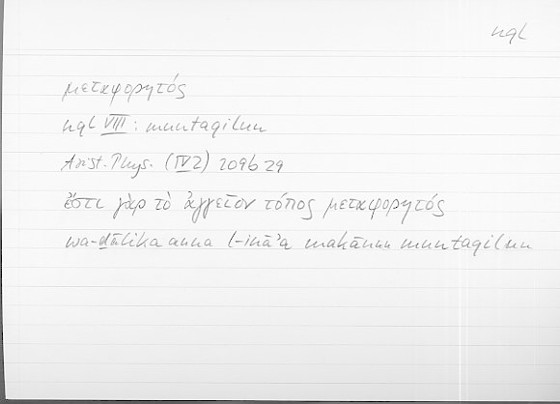 nql
μεταφορητός
nql VIII: muntaqilun
Arist. Phys. (IV 2) 209b29
ἔστι γὰρ τὸ ἀγγεῖον τόπος μεταφορητός
wa-ḏālika anna l-ināʾa makānun muntaqilun